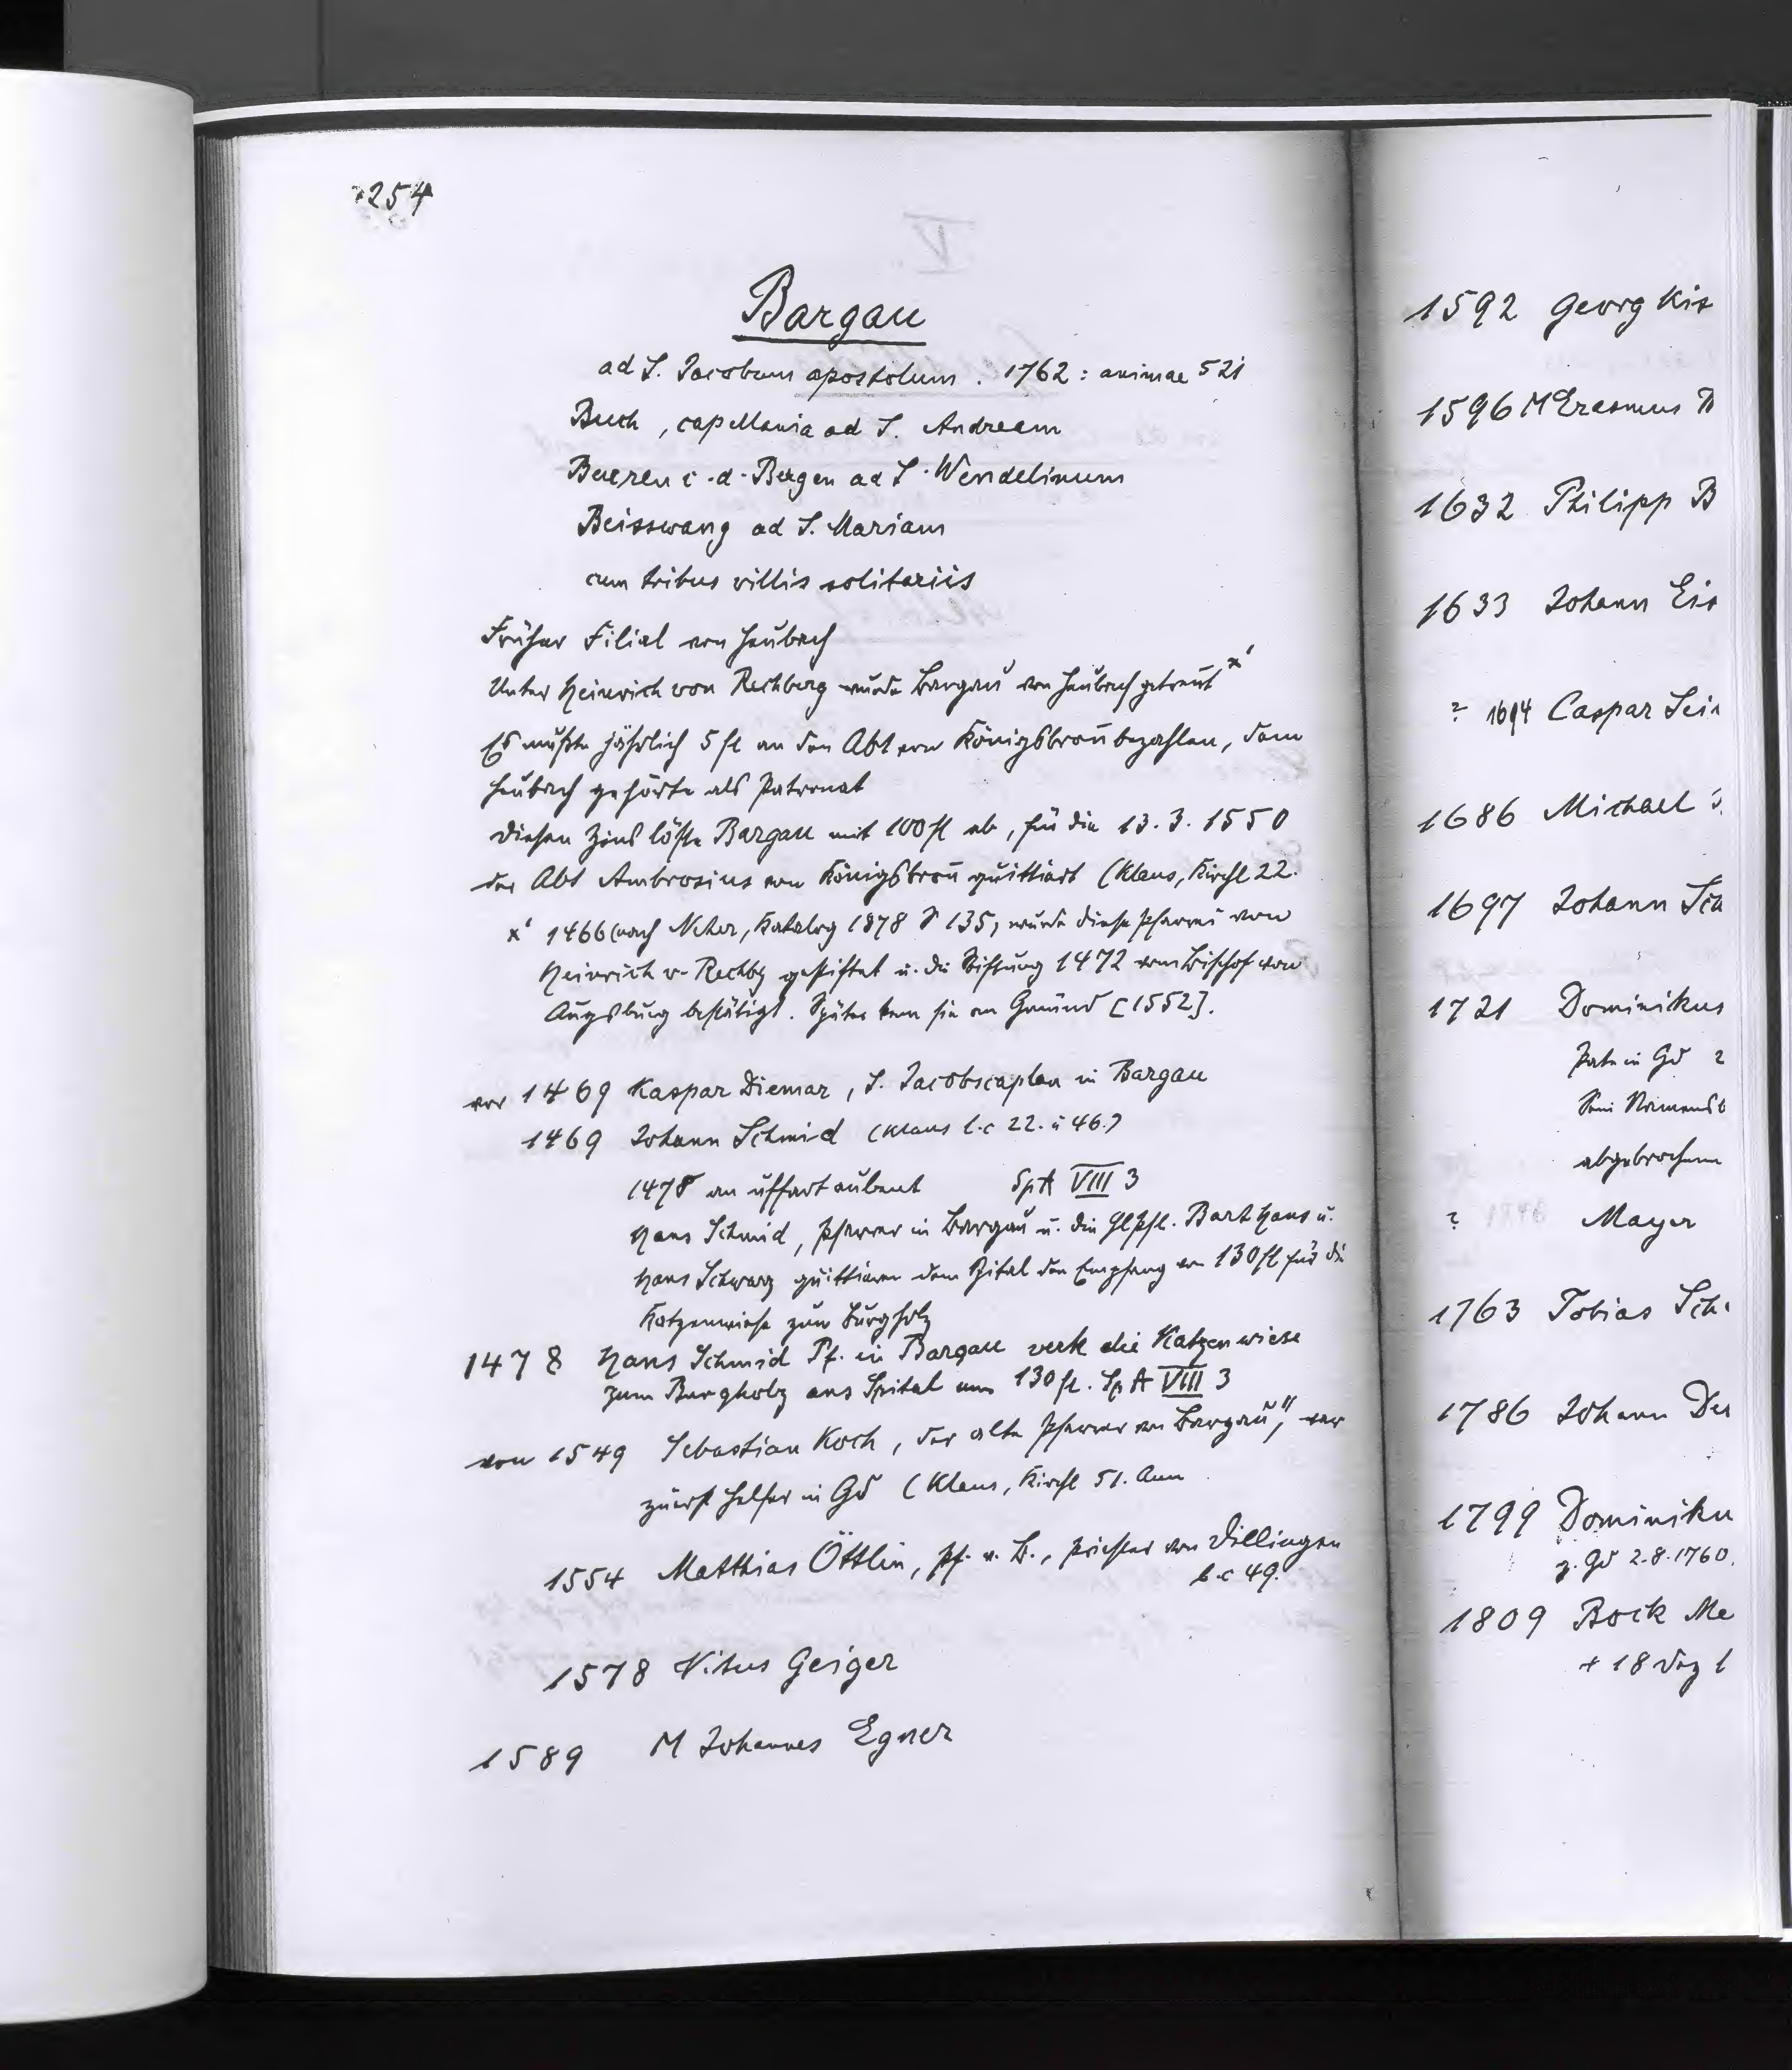 254
Bargau
ad S. Jacobum apostolum. 1762: animae 521
Buch, capellania ad S. Andream
Beuren i. d. Bergen ad S. Wendelinum
Beisswang ad S. Mariam
cum tribus villis solitariis
Früher Filial von Heubach
Unter Heinrich von Rechberg wurde Bargau von Heubach getrennt x'
Es mußte jährlich 5 fl an den Abt von Königsbronn bezahlen, dem
Heubach gehörte als Patronat
Diesen Zins löste Bargau mit 100 fl ab, für die 13. 3. 1550
der Abt Ambrosius von Königsbronn quittiert (Klaus, Kirchl 22.
x' 1466 (nach Neher, Katalog 1878 S 135) wurde diese Pfarrei von
Heinrich v. Rechbg gestiftet u. die Stiftung 1472 vom Bischof von
Augsburg bestätigt. Später kam sie an Gmünd [1552].
vor 1469 Kaspar Diemar, S. Jacobscaplan in Bargau
1469 Johann Schmid (Klaus l.c 22. u 46.)
1478 an uffart aubent SpA VIII 3
Hans Schmid, Pfarrer in Bargau u. die Hlpfl. Bart Hans u.
Hans Schwarz quittieren dem Spital den Empfang von 130 fl für die
Katzenwiese zum Burgholz
1478 Hans Schmid Pf. in Bargau verk die Katzenwiese
zum Burgholz ans Spital um 130 fl. SpA VIII 3
von 1549 Sebastian Koch, der alte Pfarrer von Bargau", war
zuerst Helfer in Gd (Klaus, Kirchl 51. Anm
1554 Matthias Öttlin, Pf. v. B., Priester von Dillingen
l.c 49.
1578 Vitus Geiger
1589 M Johannes Egner
1592 Georg
1596 M Erasmus
1632 Philipp B
1633 Johann
? Caspar
1686 Michael
1697 Johann
1721 Dominikus
Pate in Gd
abgebrochen
? Mayer
1763 Tobias Sch
1786 Johann
1799 Dominiku
z. Gd 2.8.1760.
1809 Bock Me
+ 18 Dez 1